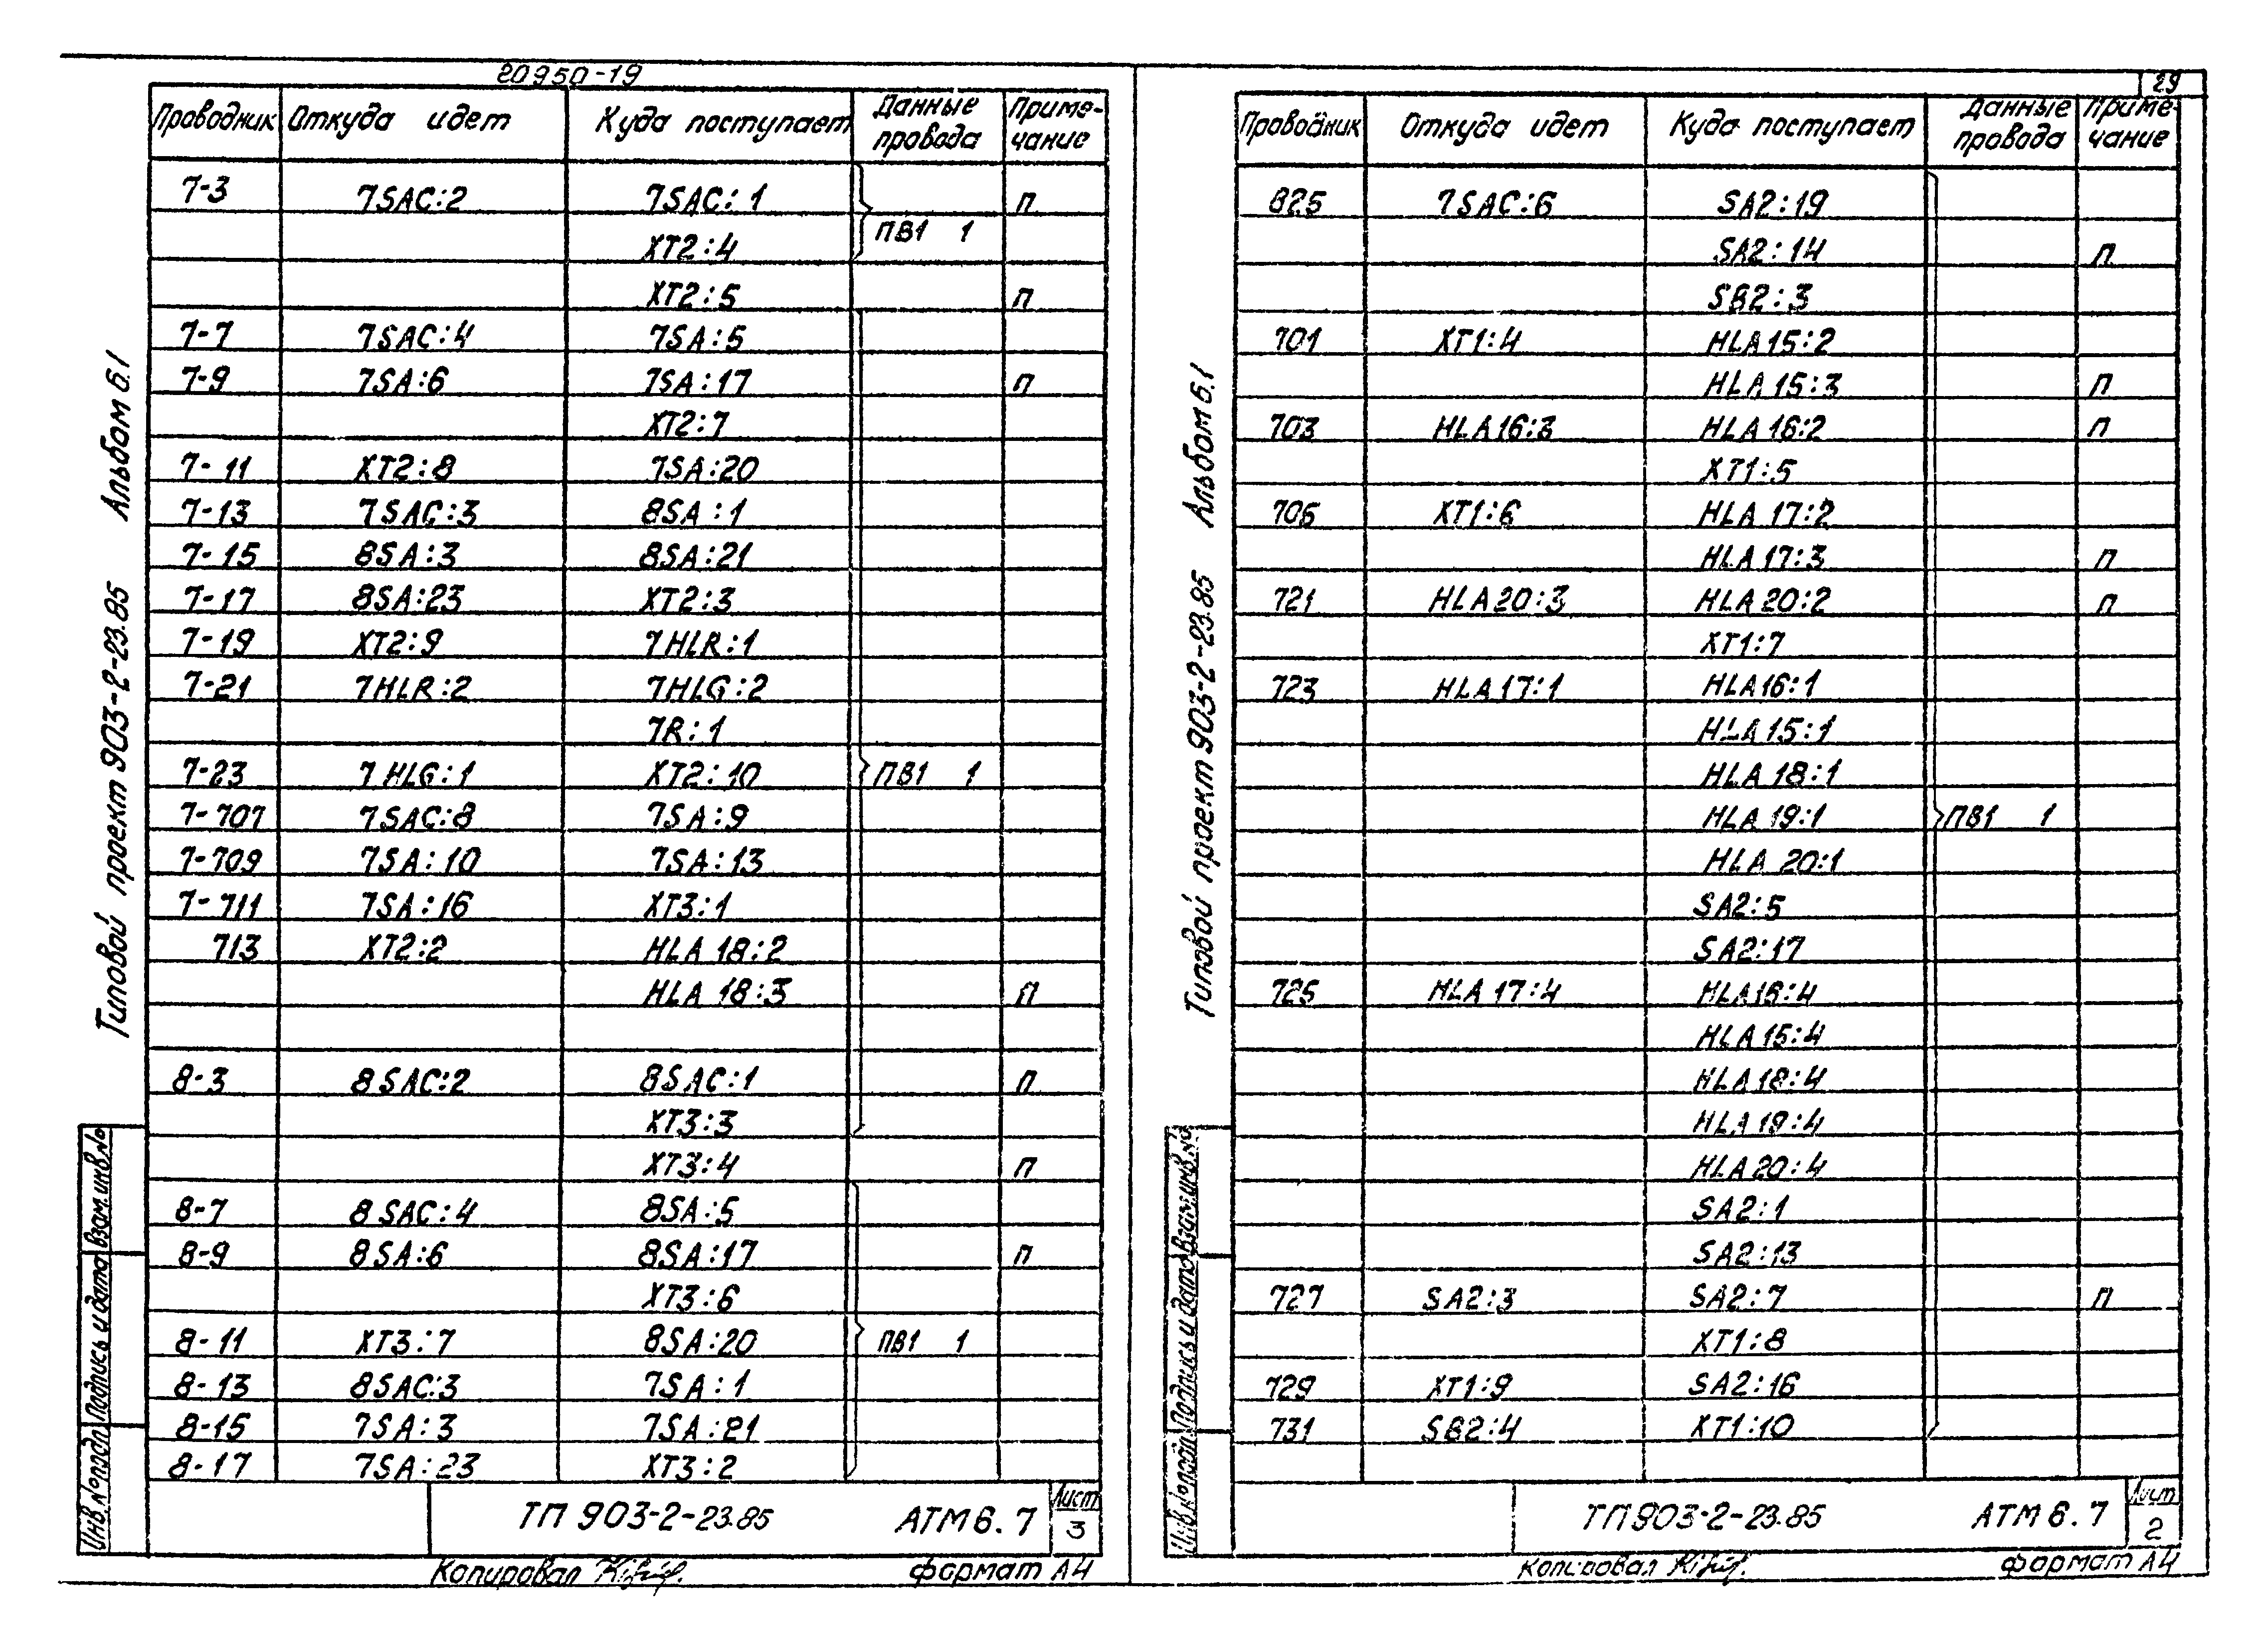 20950-19
Проводник Откуда идет Куда поступает Данные провода Примечание
7-3 7SAC:2 7SAC:1 П
XT2:4 ПВ1 1
XT2:5 П
7-7 7SAC:4 7SA:5
7-9 7SA:6 7SA:17 П
XT2:7
7-11 XT2:8 7SA:20
7-13 7SAC:3 8SA:1
7-15 8SA:3 8SA:21
7-17 8SA:23 XT2:3
7-19 XT2:9 7HLR:1
7-21 7HLR:2 7HLG:2
7R:1
7-23 7HLG:1 XT2:10 ПВ1 1
7-707 7SAC:8 7SA:9
7-709 7SA:10 7SA:13
7-711 7SA:16 XT3:1
713 XT2:2 HLA18:2
HLA18:3 П
8-3 8SAC:2 8SAC:1 П
XT3:3
XT3:4 П
8-7 8SAC:4 8SA:5
8-9 8SA:6 8SA:17 П
XT3:6
8-11 XT3:7 8SA:20 ПВ1 1
8-13 8SAC:3 7SA:1
8-15 7SA:3 7SA:21
8-17 7SA:23 XT3:2
ТП 903-2-23.85 АТМ6.7 Лист 3
Копировал формат А4
Типовой проект 903-2-23.85 Альбом 6.1
Инв.№подл. Подпись и дата Взам.инв.№
29
Проводник Откуда идет Куда поступает Данные провода Примечание
825 7SAC:6 SA2:19
SA2:14 П
SB2:3
701 XT1:4 HLA15:2
HLA15:3 П
703 HLA16:3 HLA16:2 П
XT1:5
705 XT1:6 HLA17:2
HLA17:3 П
721 HLA20:3 HLA20:2 П
XT1:7
723 HLA17:1 HLA16:1
HLA15:1
HLA18:1
HLA19:1 ПВ1 1
HLA20:1
SA2:5
SA2:17
725 HLA17:4 HLA16:4
HLA15:4
HLA18:4
HLA19:4
HLA20:4
SA2:1
SA2:13
727 SA2:3 SA2:7 П
XT1:8
729 XT1:9 SA2:16
731 SB2:4 XT1:10
ТП 903-2-23.85 АТМ6.7 Лист 2
Копировал формат А4
Типовой проект 903-2-23.85 Альбом 6.1
Инв.№подл. Подпись и дата Взам.инв.№